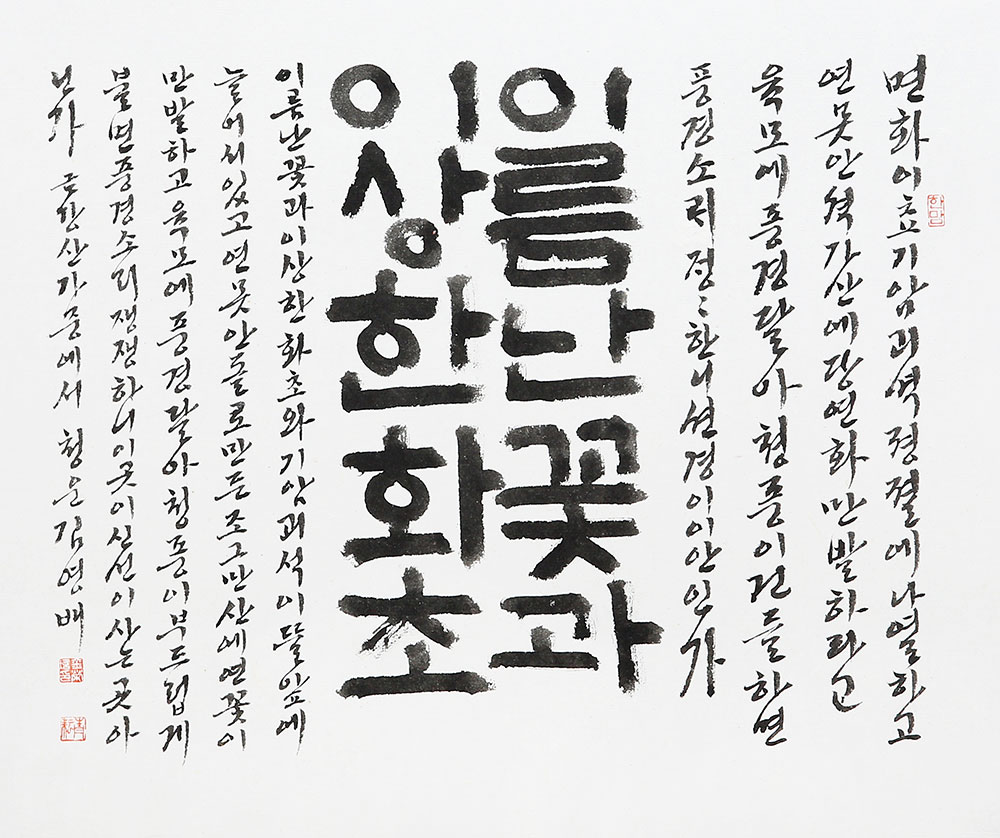 면화이쵸기암괴셕졍졀에나열하고
연못안셕가산에당연화만발하라고
육모에풍경달아쳥풍이건들하면
풍경소리졍〻한니션경이이안인가
이름난꽃과
이상한화초
이름난꽃과이상한화초와기암괴석이뜰앞에
늘어서있고연못안돌로만든조그만산에연꽃이
만발하고육모에풍경달아청풍이부드럽게
불면풍경소리쟁쟁하니이곳이신선이사는곳아
닌가 금강산가중에서 청운김영배